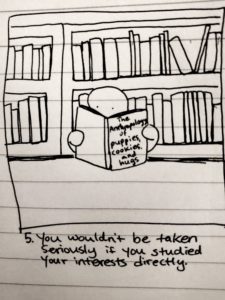 The
Anthropology
of
puppies,
cookies,
and
hugs
5. You wouldn't be taken
seriously if you studied
your interests directly.